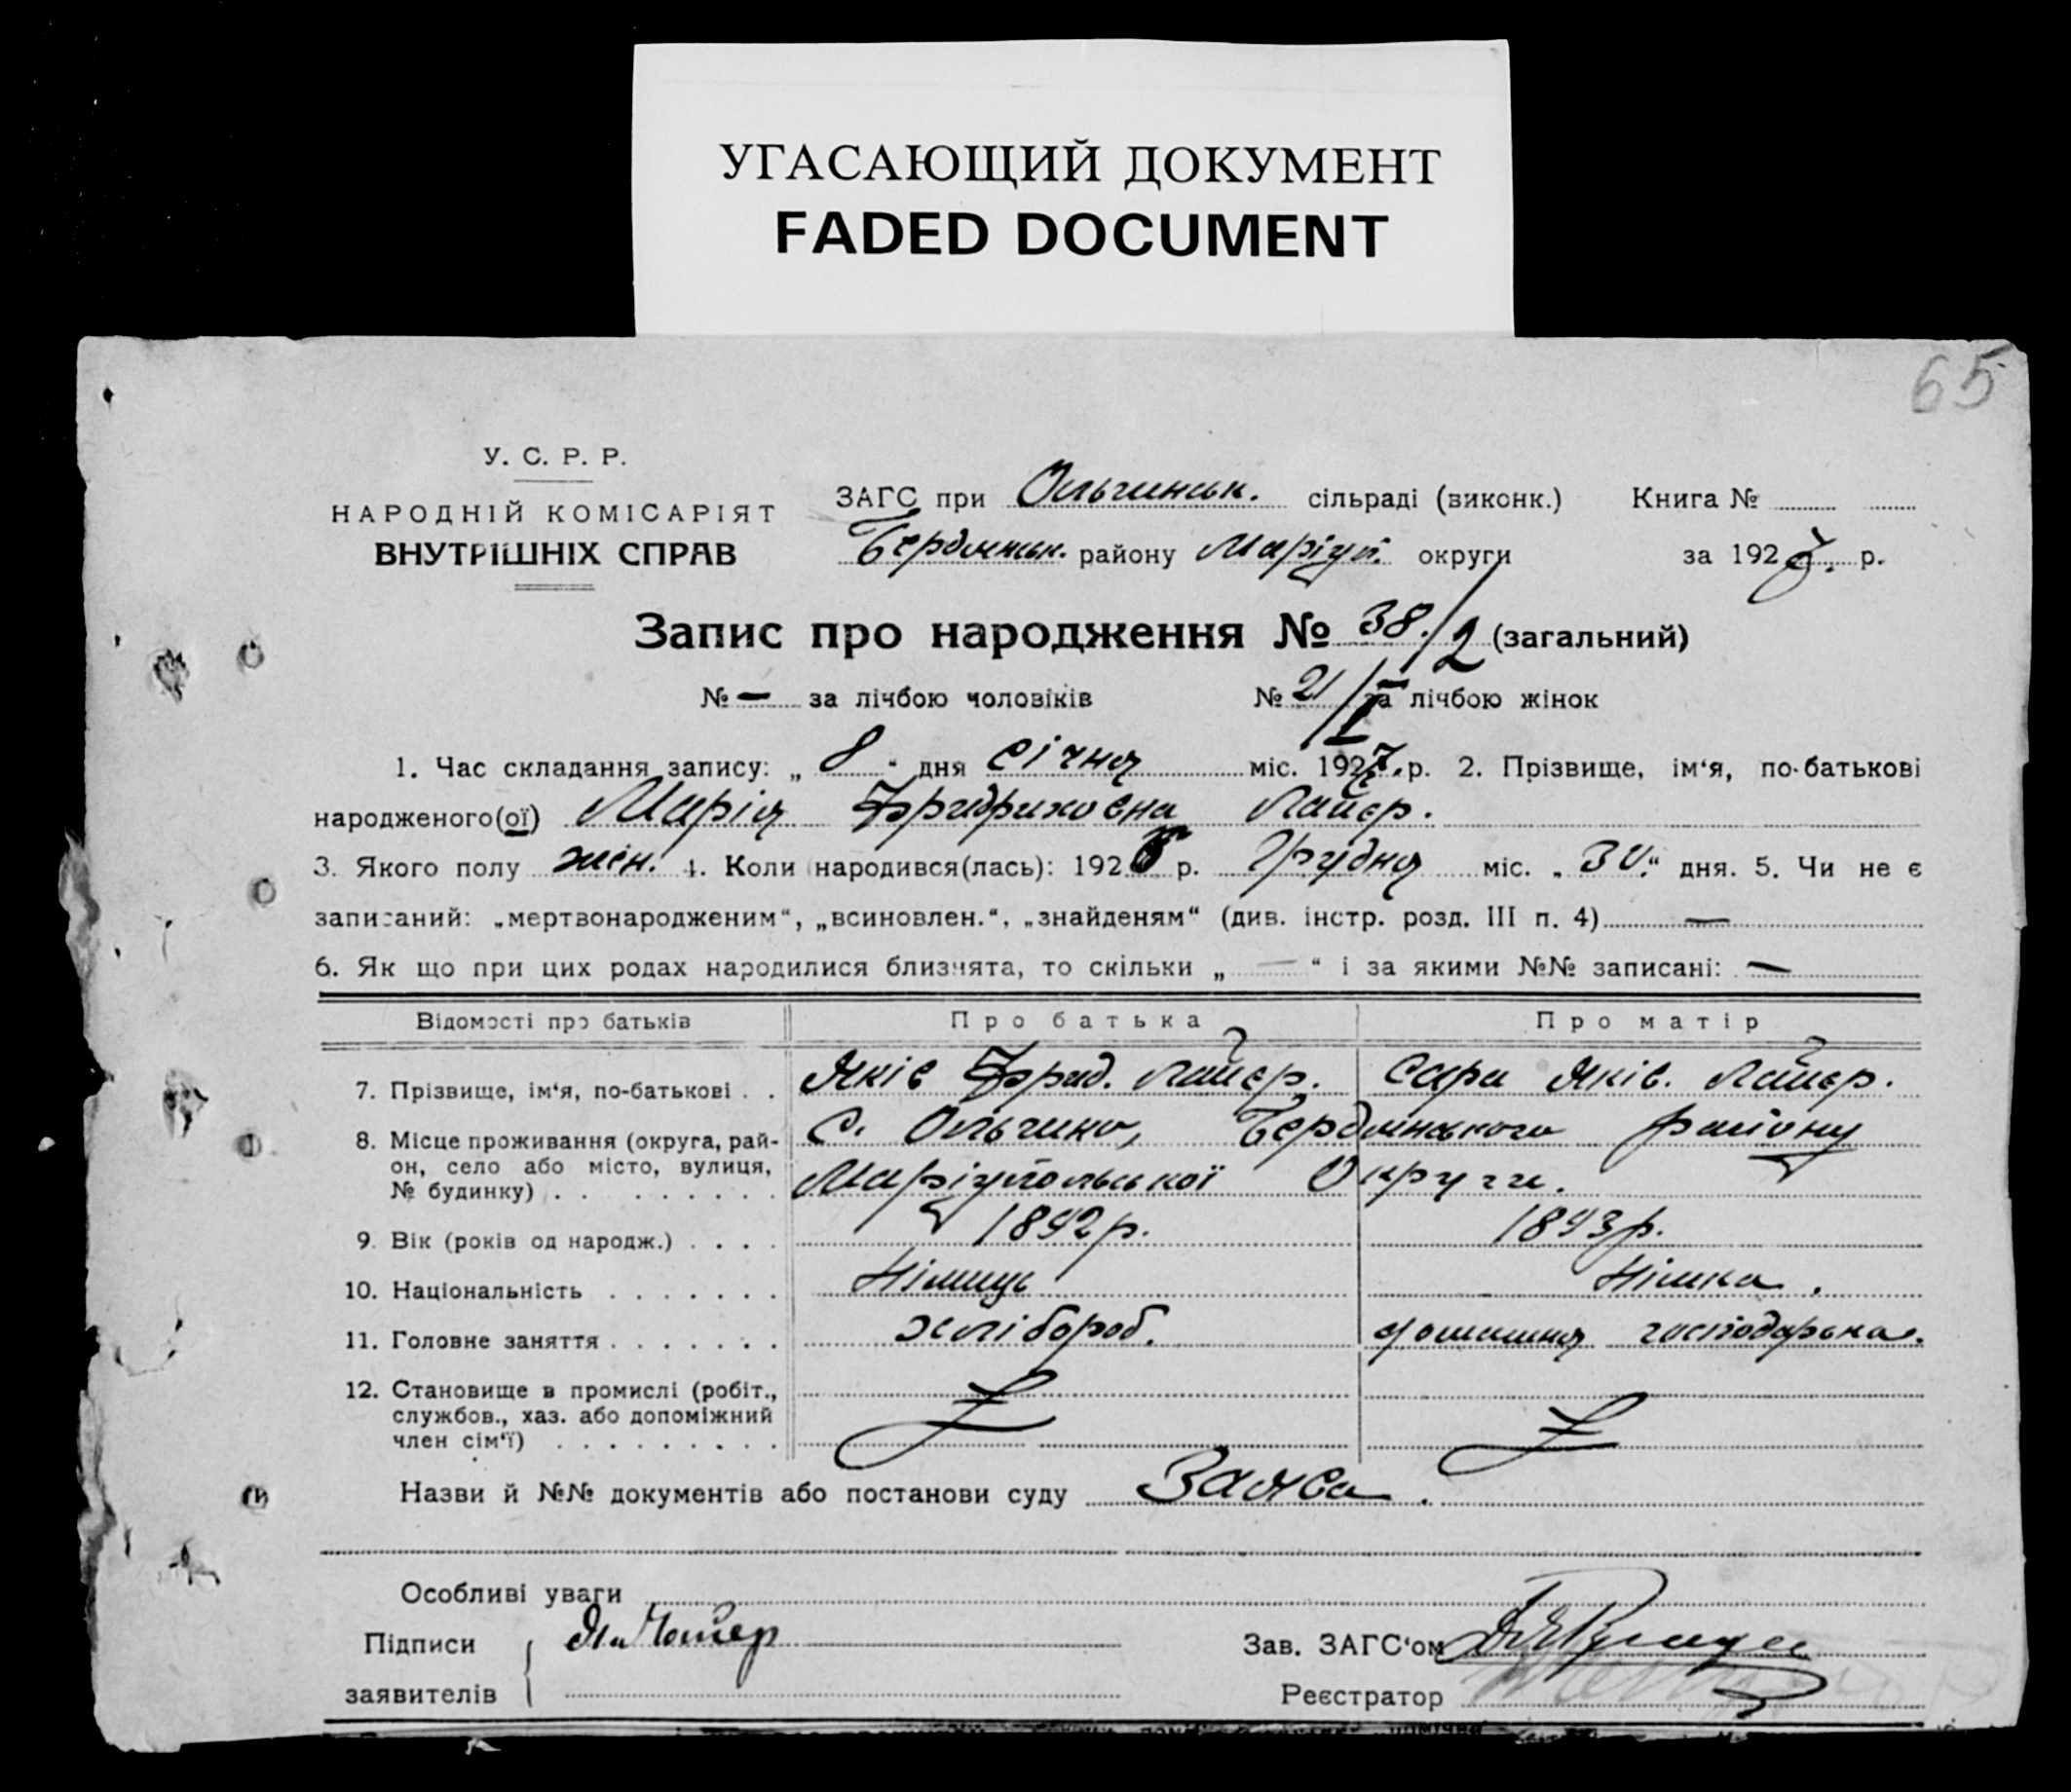 УГАСАЮЩИЙ ДОКУМЕНТ
FADED DOCUMENT
65
У. С. Р. Р.
НАРОДНІЙ КОМІСАРІЯТ
ВНУТРІШНІХ СПРАВ
ЗАГС при Ольгинськ. сільраді (виконк.) Книга №
Бердянськ. району Маріуп. округи за 1927. р.
Запис про народження № 38./2 (загальний)
№ — за лічбою чоловіків № 21/1 за лічбою жінок
1. Час складання запису: „ 8 “ дня Січня міс. 1927. р. 2. Прізвище, ім‘я, по-батькові
народженого(ої) Марія Фридриховна Лайєр.
3. Якого полу жін. 4. Коли народився(лась): 1926 р. Грудня міс. „ 30. “ дня. 5. Чи не є
записаний: „мертвонародженим“, „всиновлен.“, „знайденям“ (див. інстр. розд. III п. 4) —
6. Як що при цих родах народилися близнята, то скільки „ — “ і за якими №№ записані: —
Відомості про батьків Про батька Про матір
7. Прізвище, ім‘я, по-батькові . . Яків Фрид. Лайєр. Сара Яків. Лайєр.
8. Місце проживання (округа, рай-
он, село або місто, вулиця,
№ будинку) . . . . . . . . .
С. Ольгино, Бердянського району
Маріупольської Округи.
9. Вік (років од народж.) . . . . 1892 р. 1893 р.
10. Національність . . . . . . . Німець Німка.
11. Головне заняття . . . . . . . хлібороб. домашня господарька.
12. Становище в промислі (робіт.,
службов., хаз. або допоміжний
член сім‘ї) . . . . . . . . .
Назви й №№ документів або постанови суду Заява.
Особливі уваги
Підписи
заявителів
Зав. ЗАГС‘ом
Реєстратор